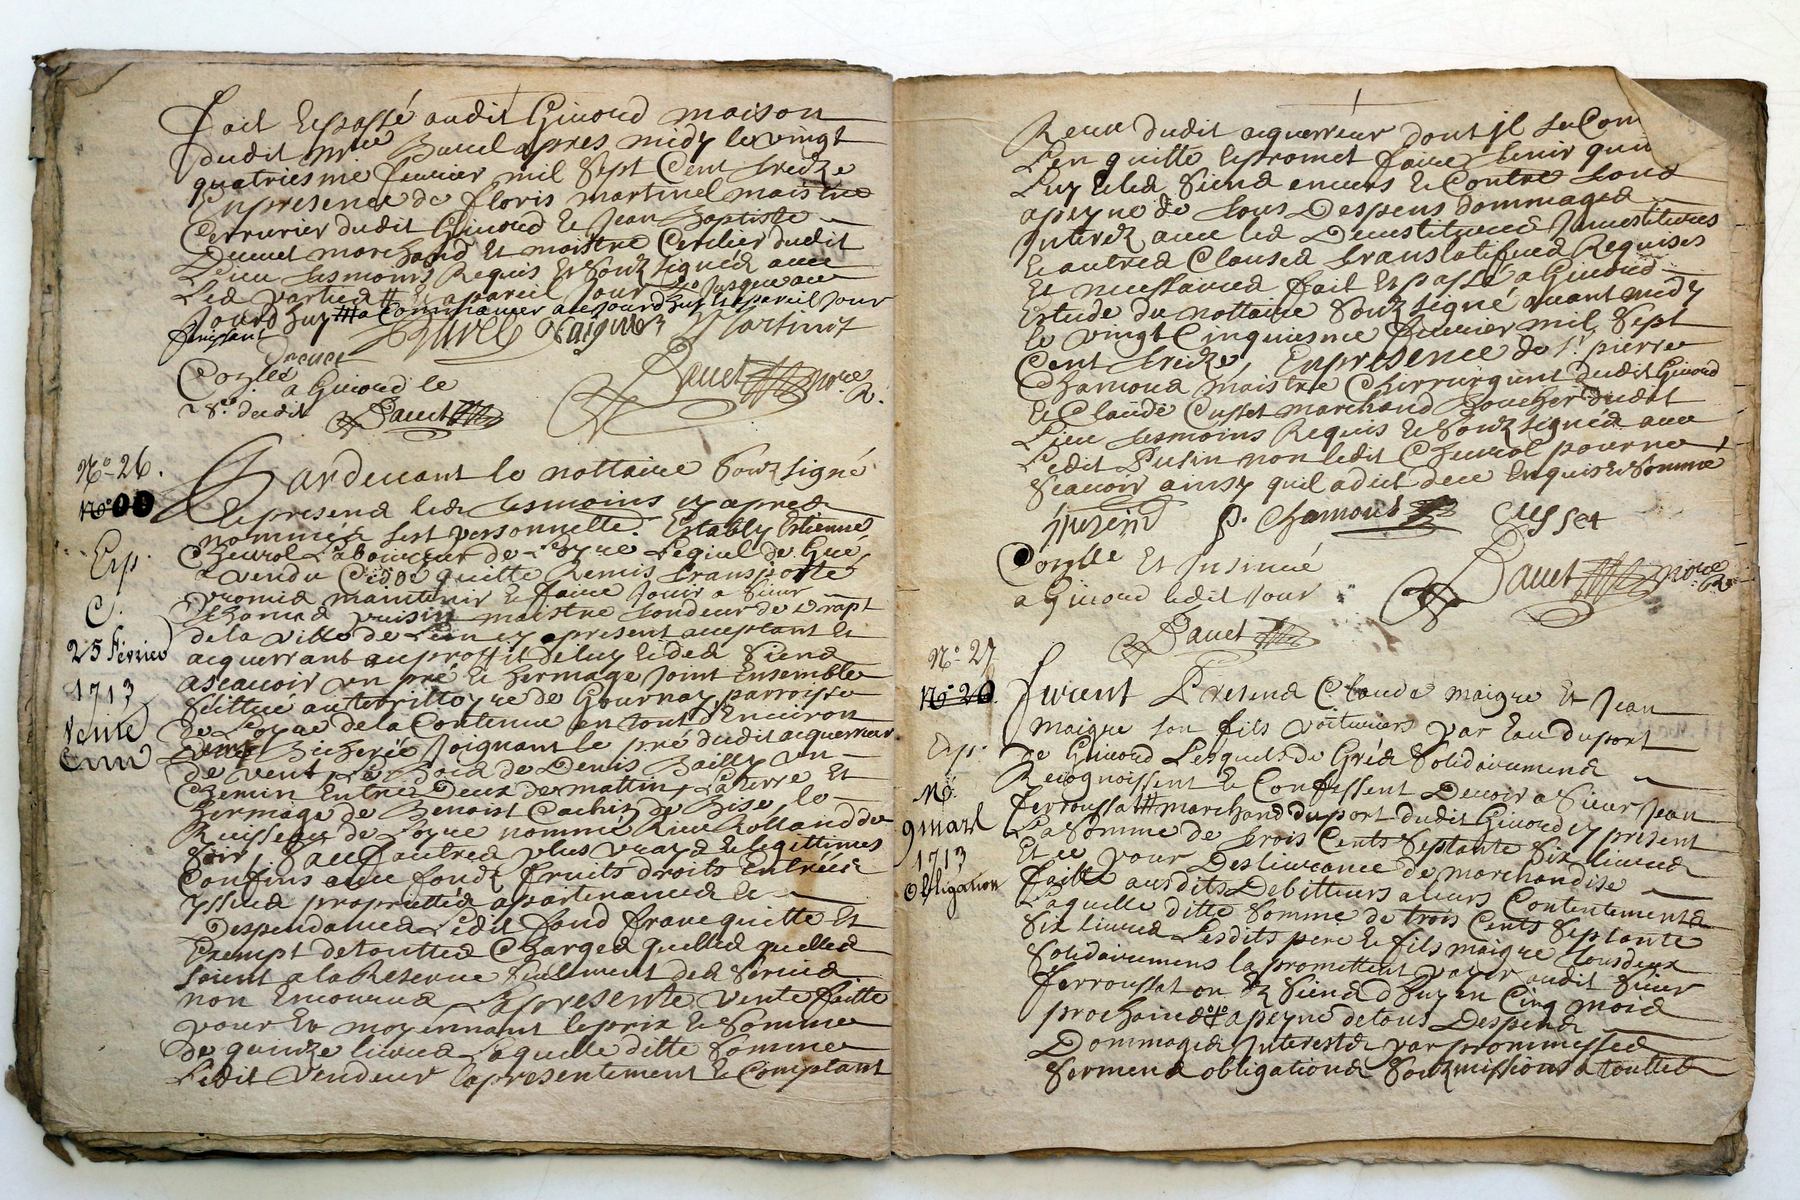 fait et passé audit Givord maison
dudit mre Bauel apres midy le vingt
quatriesme fevrier mil sept cent treize
En presence de floris martinel maistre
Cerrurier dudit Givord et Jean Baptiste
marchand et maistre Cerclier dudit
Lieu tesmoins Requis et soubzsignéz avec
Led parties et a pareil jour jusques au
jourdhuy a Commancer aujourdhuy et a pareil jour
finissant
Martinel
Conllé
a Givord le
28e dudit
Bauet
Bauet nore R.
No. 26.
No
Exp.
C.
25 Février
1713
Vente
Pardevant le nottaire soubzsigné
et presend led tesmoins cy apred
nommés sest personnelle. Estably Estienne
Cheurol Laboureur de Loyre Lequel de Gré
a vendu Cédé quitte Remis transporte
promid maintenir et faire jouir a sieur
Thomas pusin maistre tondeur de drapt
de la ville de Lion cy present acceptant et
acquerrant au proffit de luy et des siend
ascavoir un pré et hermage joint Ensemble
scittue au territtoyre de Gournay parroisse
de Loyre de la Contenue en tout d'Environ
bicherée joignant le pré dudit acquerreur
de vent bois de Denis Bailly un
Chemin Entre deux de mattin, La terre et
hermage de Benoist Cachet de Bise, le
Ruisseau de Loyre nommé Rieu Rolland de
soir, sauf autred plus vrayd et legittimes
Confins avec fondz fruits droits Entrées
yssued propriettéd appartenanced et
Despendanced Ledit fond franc quitte et
Exempt de touttes Charged quelled quelled
soient a la Reserve seulement ded servid
non Encourud La presente vente faitte
pour et moyennant le prix et somme
de quinze livred Laquelle ditte somme
Ledit vendeur la presentement et Comptant
Receu dudit acquerreur dont il se Con
L'en quitte et promet faire tenir quit
Luy et led siend envers et Contre toud
a peyne de tous Despens dommaged
interez avec led Devestitured Investitures
et autred Claused translatived Requises
et necessaired fait et passé a Givord
Estude du nottaire soubzsigné avant midy
le vingt Cinquiesme fevrier mil sept
Cent treize, En presence de sr. pierre
Chamoud maistre Chirrurgient dudit Givord
et Claude Cusset marchand Boucher dudit
Lieu tesmoins Requis et soubzsignéd avec
Ledit Pusin non ledit Cheurol pour ne
scavoir ainsy quil a dit de ce Enquis et sommé
Puzin P. Chamoud Cusset
Conllé Et Insinué
a Givord ledit jour
Bauet nore R.
Bauet
No. 27
No. 26.
Exp.
No.
9 mars
1713
Obligation
furent Presend Claude maigre et Jean
maigre son fils voituriers par Eau du port
de Givord Lesquels de Gréd solidairemend
Recognoissent et Confessent Devoir a sieur Jean
ferroussat marchand du port dudit Givord cy present
La somme de trois Cents septante six livred
Et ce pour Deslivrance de marchandise
faitte ausdits Debitteurs a leurs Contentementd
Laquelle ditte somme de trois Cents septante
six livred Lesdits pere et fils maigre tousdeux
solidairemens la promettent payer audit sieur
ferroussat ou ez siend d'huy en Cinq moid
prochaind a peyne de tous Despend
Dommaged Interestd par prommessed
sermend obligationd soubzmissiond a touttes